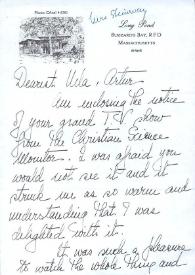 Long Road
BUZZARDS BAY, R.F.D
MASSACHUSETTS
Dearest Vela, Artur
Am enclosing the notice
of your grand TV show
from the Christian Science
Monitor. I was afraid you
would not see it and it
struck me as so warm and
understanding that I was
delighted with it.
It was such a pleasure
to watch the whole thing and